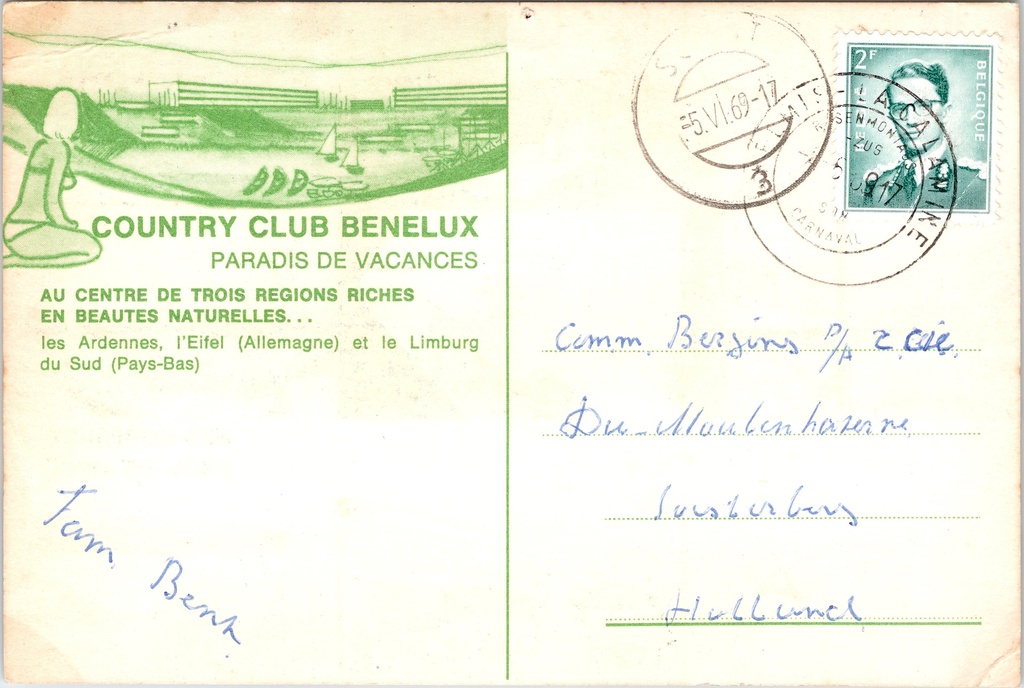 COUNTRY CLUB BENELUX
PARADIS DE VACANCES
AU CENTRE DE TROIS REGIONS RICHES
EN BEAUTES NATURELLES...
les Ardennes, l'Eifel (Allemagne) et le Limburg
du Sud (Pays-Bas)
Fam. Benk
2F
BELGIQUE
-5.VI.69-17
3
LA CALAMINE
ROSENMONTAGS
ZUG
SON
CARNAVAL
Comm. Bergins P/A 2 cie.
Du-Moulinkazerne
Soesterberg
Holland